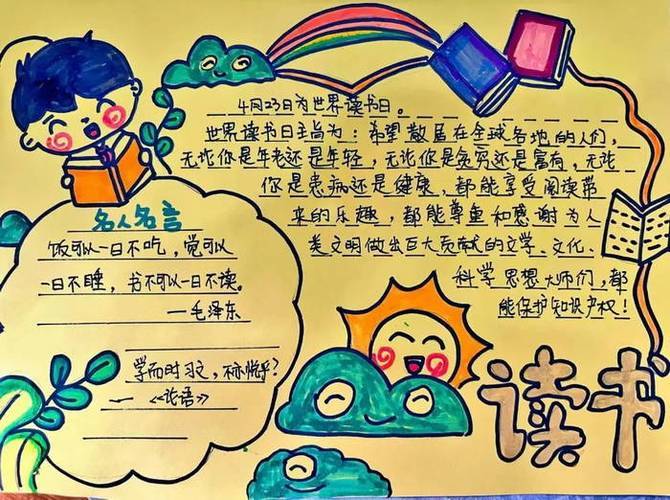 4月23日为世界读书日。
世界读书日主旨为：希望散居在全球各地的人们，
无论你是年老还是年轻，无论你是贫穷还是富有，无论
你是患病还是健康，都能享受阅读带
来的乐趣，都能尊重和感谢为人
类文明做出巨大贡献的文学、文化、
科学思想大师们，都
能保护知识产权！
名人名言
饭可以一日不吃，觉可以
一日不睡，书不可以一日不读。
—毛泽东
学而时习文，亦悦乎？
—《论语》
读书